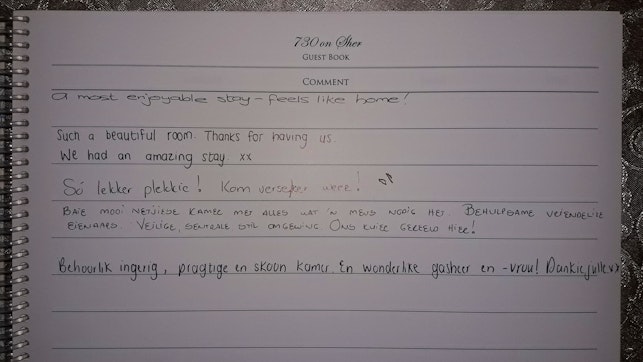 730 on Sher
GUEST BOOK
COMMENT
A most enjoyable stay - feels like home!
Such a beautiful room. Thanks for having us.
We had an amazing stay. xx
Só lekker plekkie! Kom verseker weer!
BAIE MOOI NETJIESE KAMER MET ALLES WAT 'N MENS NODIG HET. BEHULPSAME VRIENDELIKE
EIENAARS. VEILIGE, SENTRALE STIL OMGEWING. ONS KUIER GEREELD HIER!
Behoorlik ingerig, pragtige en skoon kamer. En wonderlike gasheer en -vrou! Dankie julle